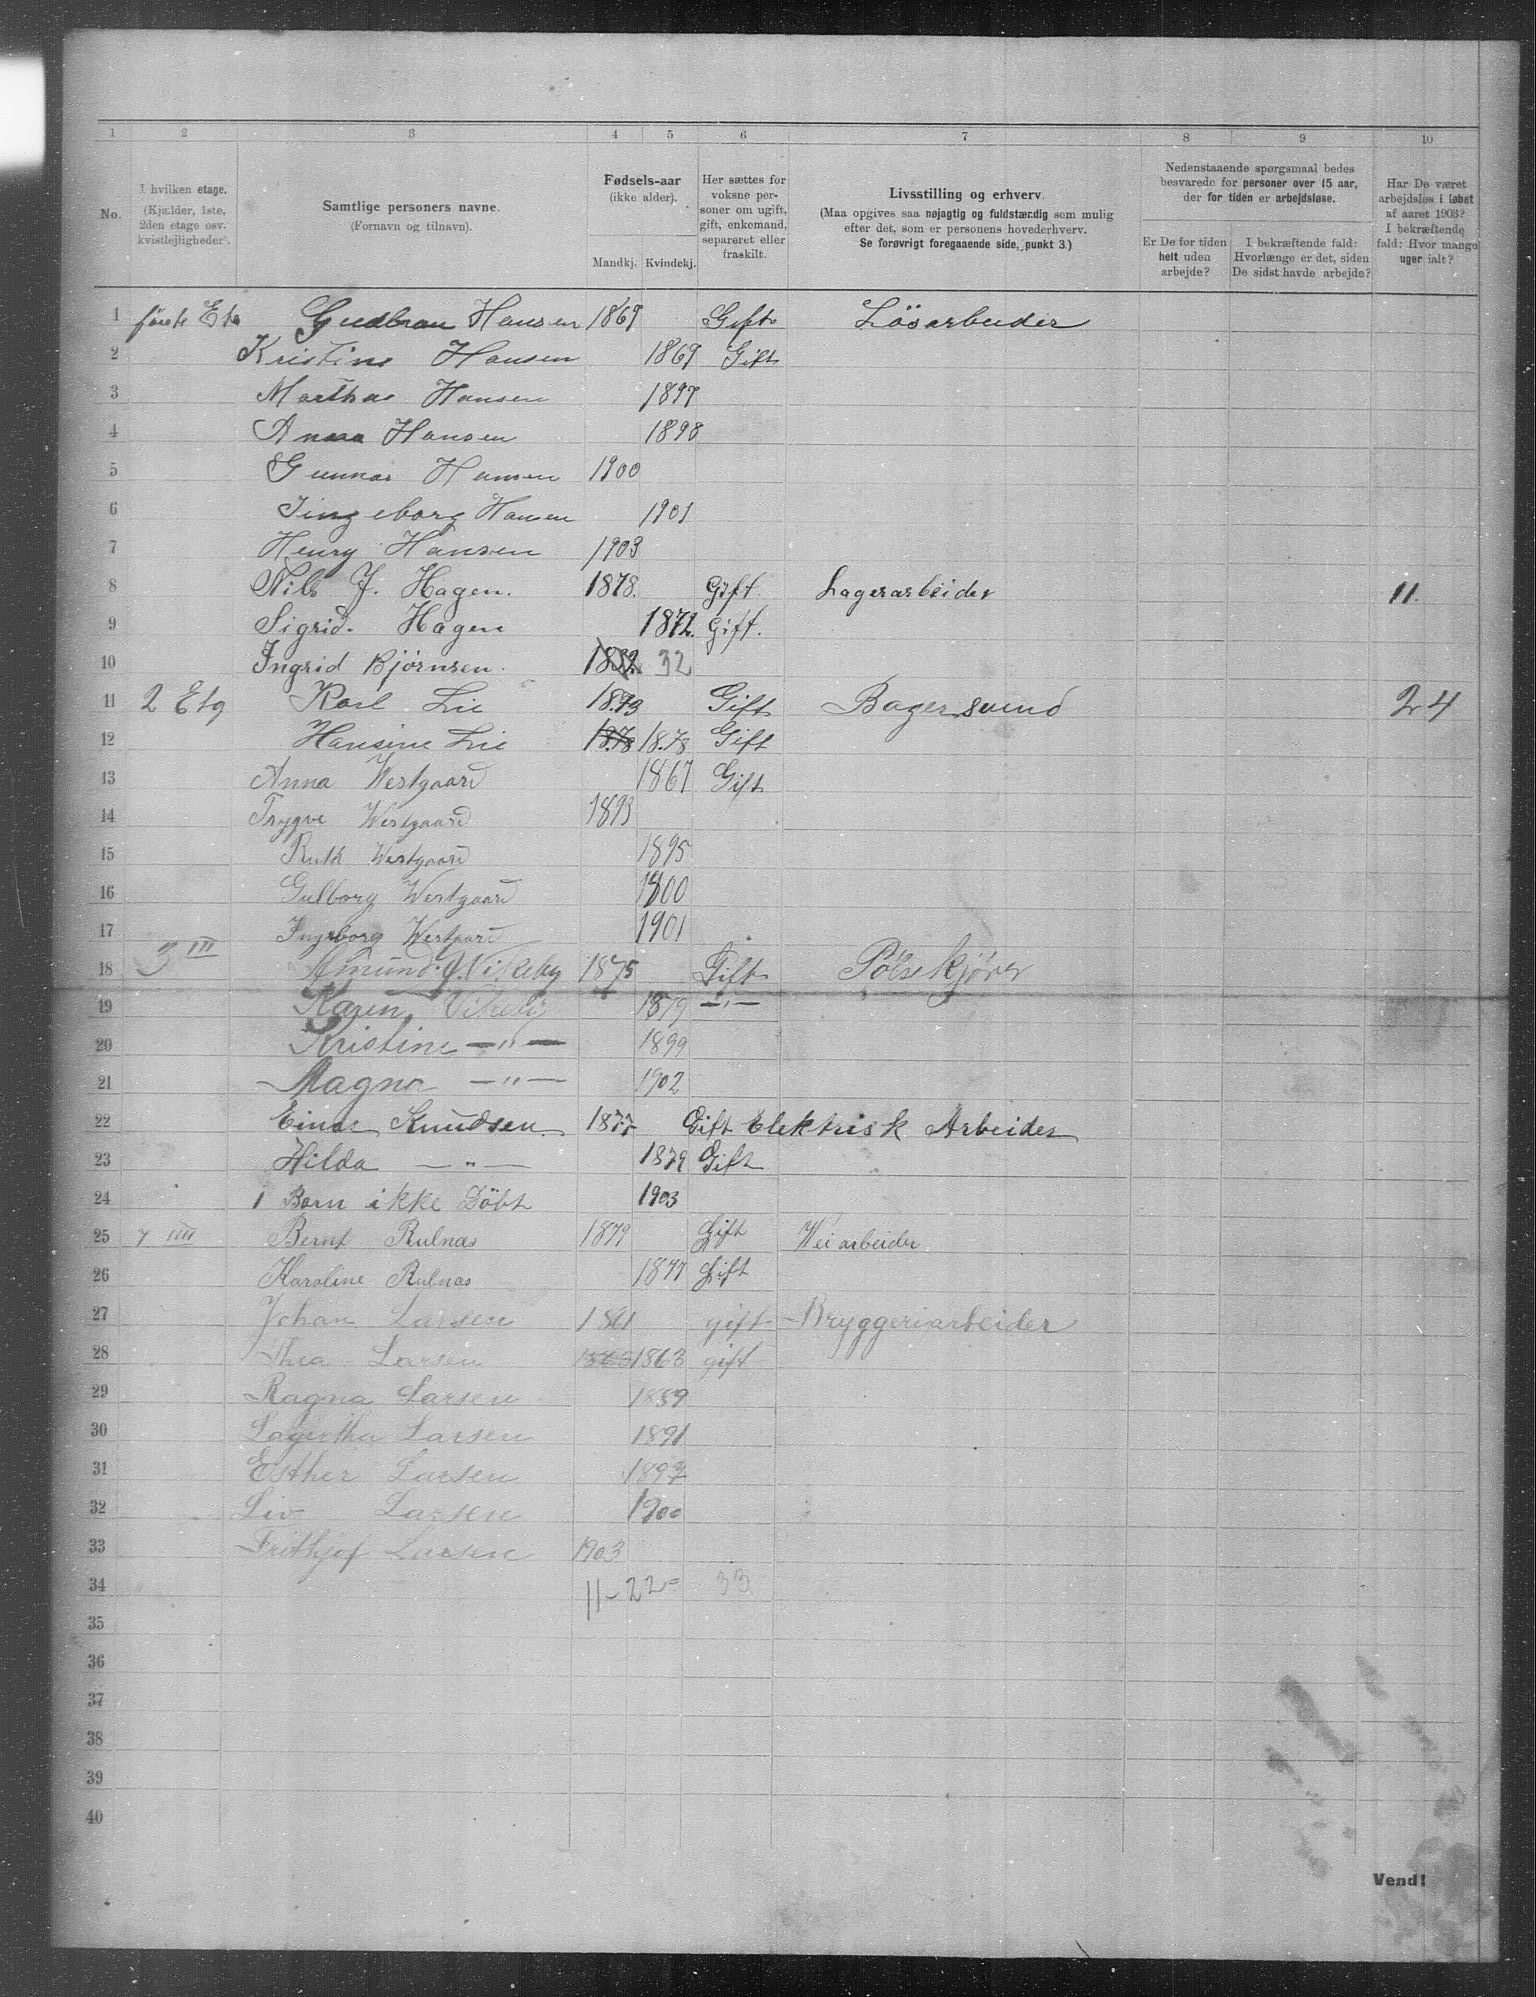 1 2 3 4 5 6 7 8 9 10
No. I hvilken etage. (Kjælder, 1ste, 2den etage osv. kvistlejligheder). Samtlige personers navne. (Fornavn og tilnavn). Fødsels-aar (ikke alder). Mandkj. Kvindekj. Her sættes for voksne personer om ugift, gift, enkemand, separeret eller fraskilt. Livsstilling og erhverv. (Maa opgives saa nøjagtig og fuldstændig som mulig efter det, som er personens hovederhverv. Se forøvrigt foregaaende side, punkt 3.) Nedenstaaende spørgsmaal bedes besvarede for personer over 15 aar, der for tiden er arbejdsløse. Er De for tiden helt uden arbejde? I bekræftende fald: Hvorlænge er det, siden De sidst havde arbejde? Har De været arbejdsløs i løbet af aaret 1903? I bekræftende fald: Hvor mange uger ialt?
1 første Etg Gudbran Hansen 1869 Gift Løsarbeider
2 Kristine Hansen 1869 Gift
3 Martha Hansen 1897
4 Anna Hansen 1898
5 Gunnar Hansen 1900
6 Ingeborg Hansen 1901
7 Henry Hansen 1903
8 Nils J. Hagen. 1878. Gift. Lagerarbeider 11.
9 Sigrid. Hagen 1872. Gift.
10 Ingrid Bjørnsen. 1832 32
11 2 Etg Karl Lie 1873 Gift Bagersvend 24
12 Hansine Lie 1878 1878 Gift
13 Anna Westgaard 1867 Gift
14 Trygve Westgaard 1893
15 Ruth Westgaard 1895
16 Gulborg Westgaard 1900
17 Ingeborg Westgaard 1901
18 3 III Amund J. Vikeby 1875 Gift Pølsekjører
19 Karen Vikeby 1879 —"—
20 Kristine —"— 1899
21 Magna —"— 1902
22 Einar Knudsen 1877 Gift Elektrisk Arbeider
23 Hilda —"— 1879 Gift
24 1 Barn ikke Döbt 1903
25 4 IIII Bernt Rulnæs 1879 Gift Veiarbeider
26 Karoline Rulnæs 1877 Gift
27 Johan Larsen 1861 gift Bryggeriarbeider
28 Thea Larsen 1863 1863 gift
29 Ragna Larsen 1889
30 Lagertha Larsen 1891
31 Esther Larsen 1897
32 Liv Larsen 1900
33 Frithjof Larsen 1903
34 11-22= 33
35
36
37
38
39
40
Vend!